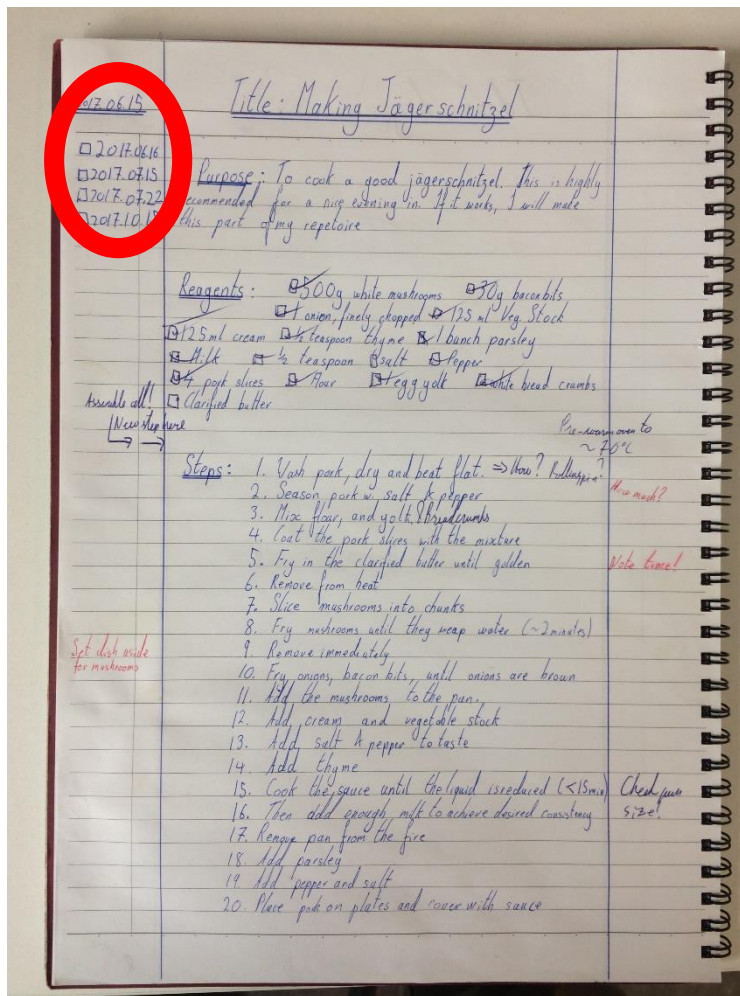 2017.06.15
Title: Making Jägerschnitzel
2017.06.16
2017.07.15
2017.07.22
2017.10.15
Purpose: To cook a good jägerschnitzel. This is highly
recommended for a nice evening in. If it works, I will make
this part of my repetoire
Reagents: 500g white mushrooms 30g bacon bits
1 onion, finely chopped 125 ml Veg. Stock
125ml cream ½ teaspoon thyme 1 bunch parsley
Milk ½ teaspoon salt Pepper
4 pork slices Flour 1 egg yolk white bread crumbs
Assemble all! Clarified butter
New step here
Pre-warm oven to
~70°C
Steps: 1. Wash pork, dry and beat flat. => How? Rollingpin?
2. Season pork w. salt & pepper
How much?
3. Mix flour, and yolk. & breadcrumbs
4. Coat the pork slices with the mixture
5. Fry in the clarified butter until golden
Note time!
6. Remove from heat
7. Slice mushrooms into chunks
8. Fry mushrooms until they weap water (~2 minutes)
Set dish aside
for mushrooms
9. Remove immediately
10. Fry onions, bacon bits, until onions are brown
11. Add the mushrooms to the pan.
12. Add cream and vegetable stock
13. Add salt & pepper to taste
14. Add thyme
15. Cook the sauce until the liquid is reduced (<15min) Check pan
16. Then add enough milk to achieve desired consistency size!
17. Remove pan from the fire
18. Add parsley
19. Add pepper and salt
20. Place pork on plates and cover with sauce